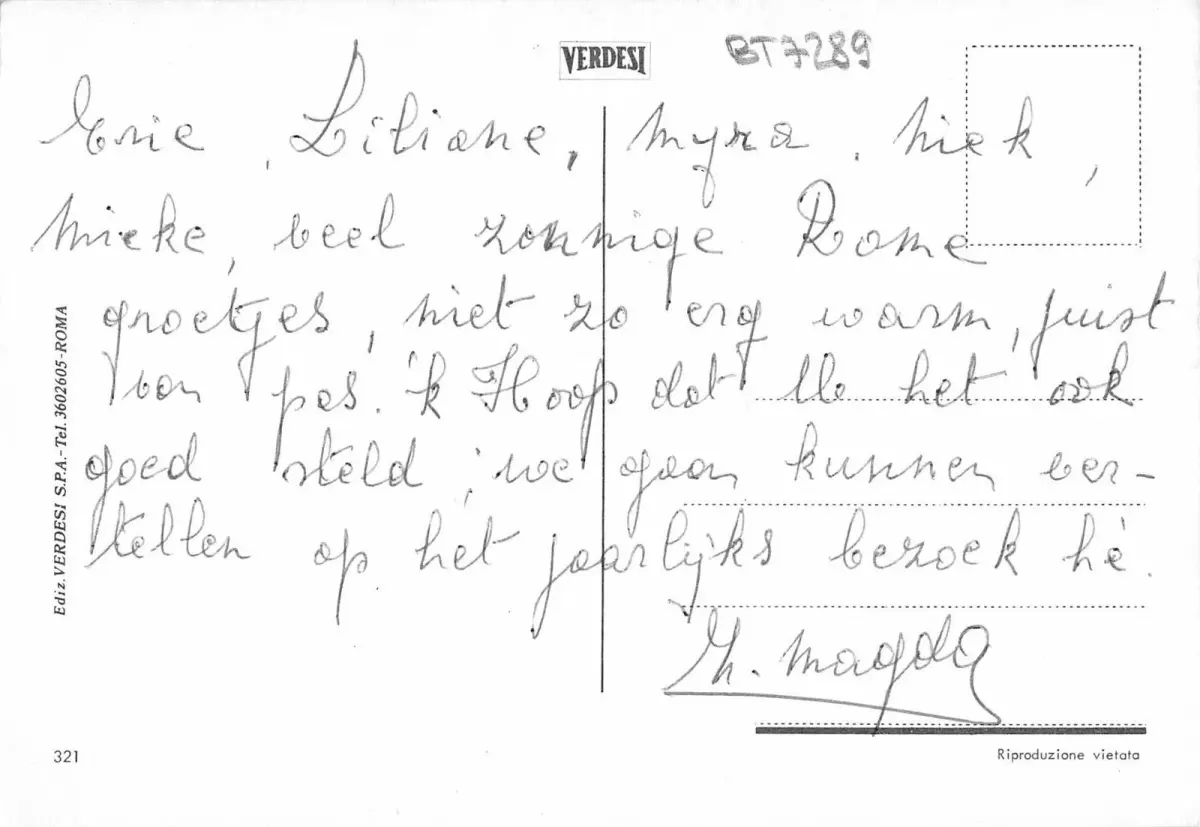 VERDESI
BT7289
Eric, Liliane, Myra, Niek,
Mieke, veel zonnige Rome
groetjes, niet zo erg warm, juist
van pas. 'k Hoop dat U het ook
goed steld, we gaan kunnen ver-
tellen op het jaarlijks bezoek hè.
Magda
Ediz. VERDESI S.P.A. - Tel. 3602605 - ROMA
321
Riproduzione vietata